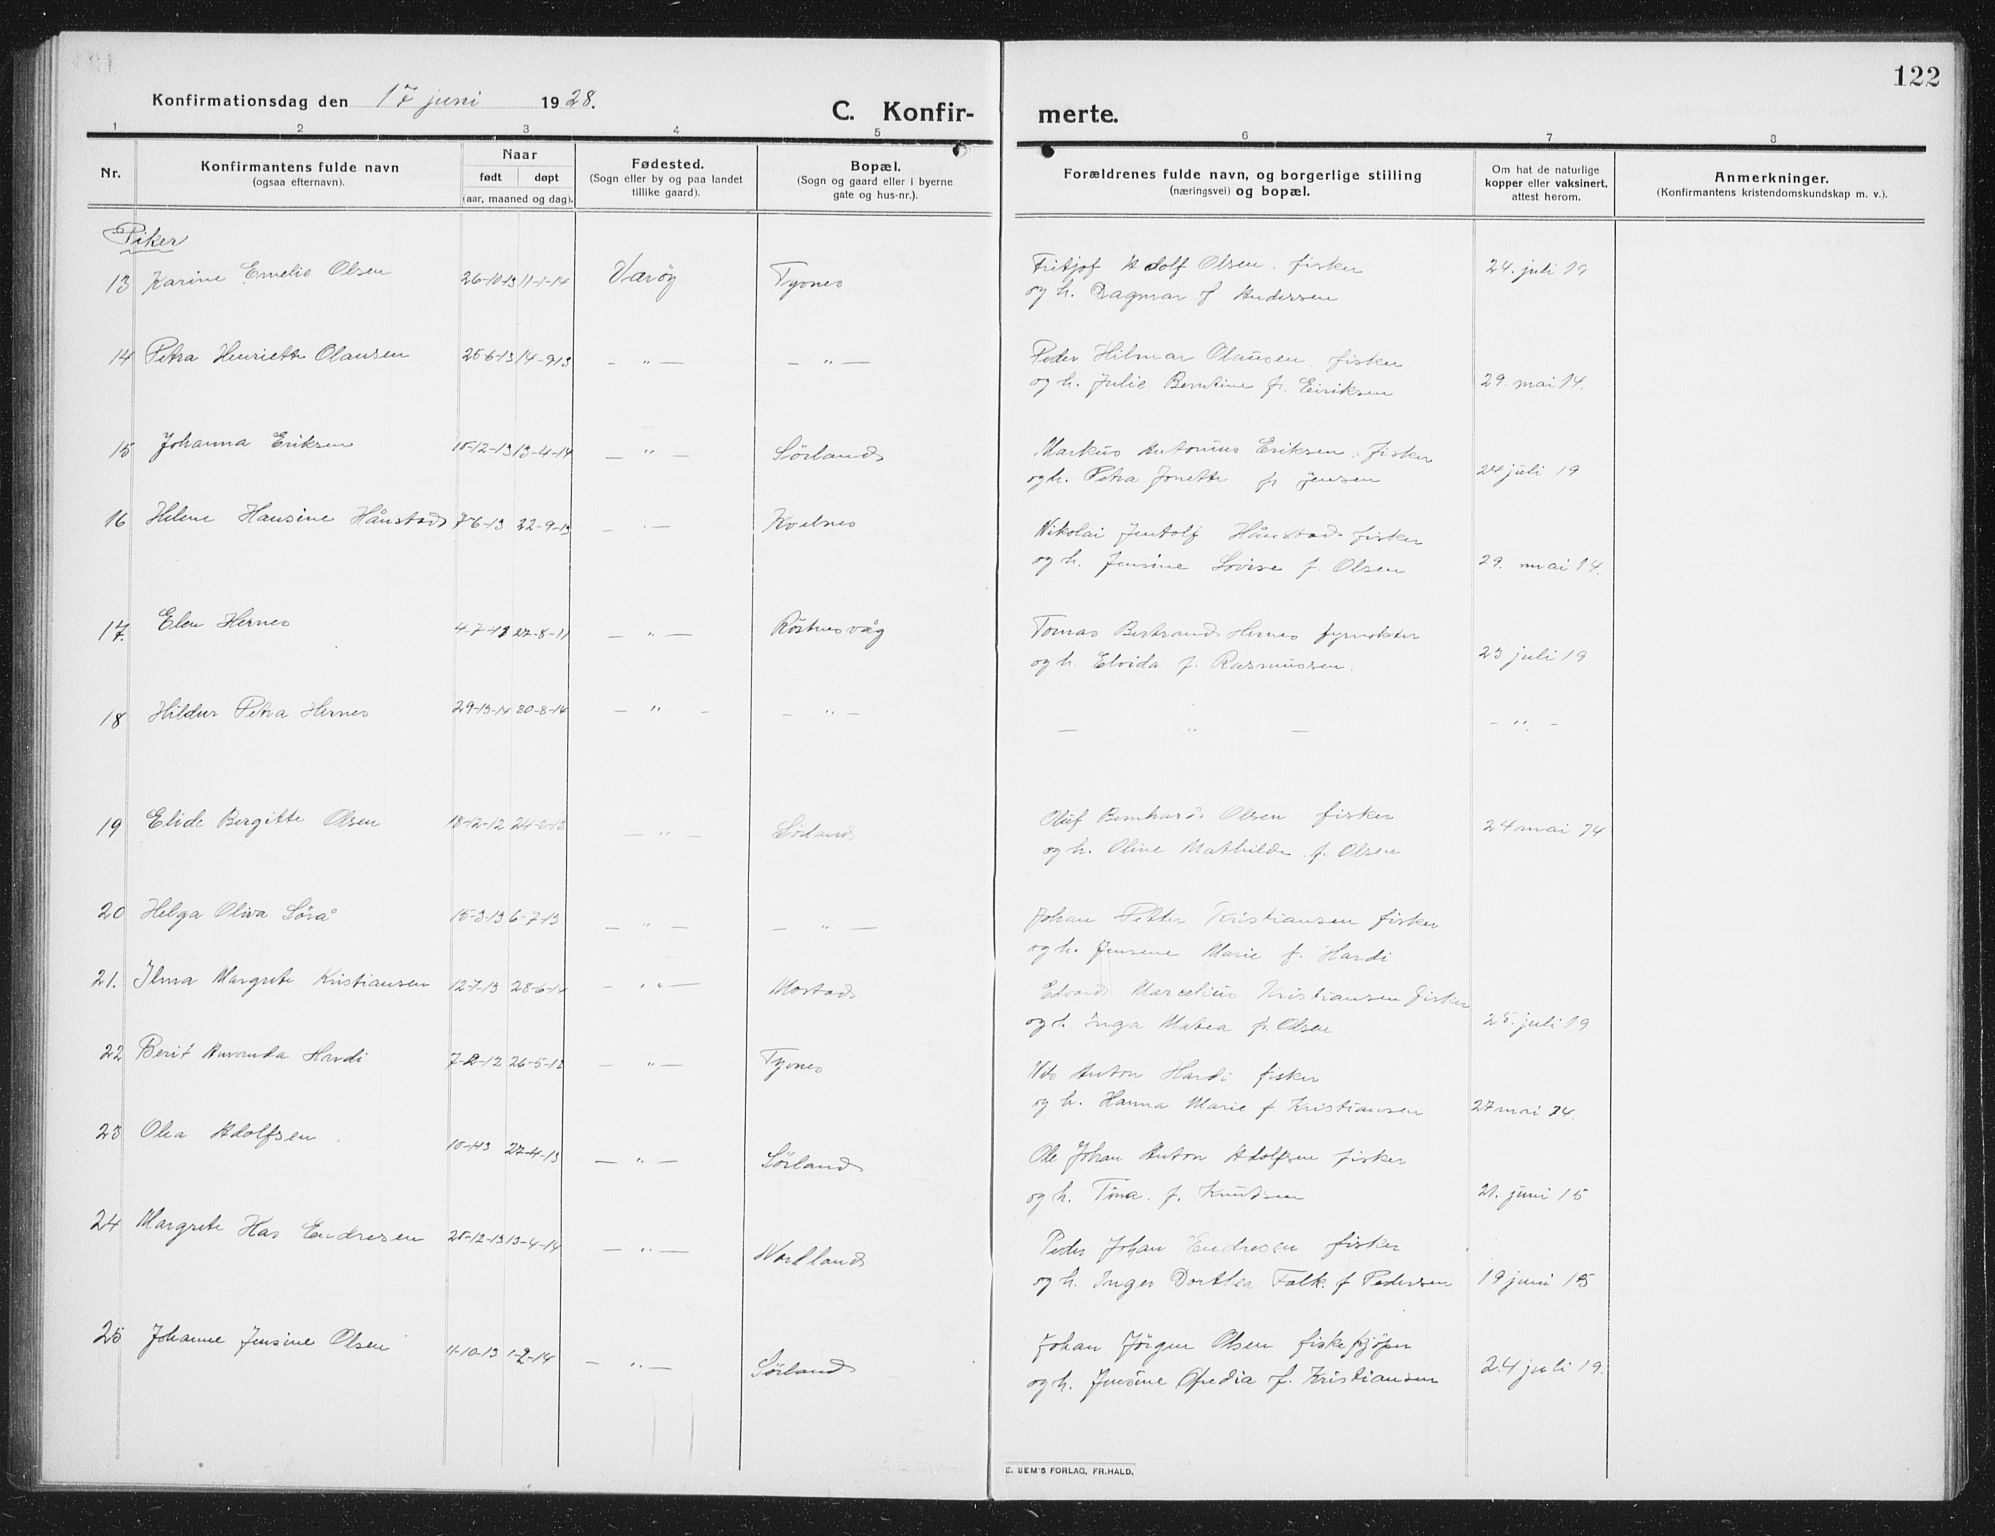 122
Konfirmationsdag den 17 juni 1928.
C. Konfirmerte.
1 2 3 4 5 6 7 8
Nr.
Konfirmantens fulde navn
(ogsaa efternavn).
Naar
født døpt
(aar, maaned og dag).
Fødested.
(Sogn eller by og paa landet
tillike gaard).
Bopæl.
(Sogn og gaard eller i byerne
gate og hus-nr.).
Forældrenes fulde navn, og borgerlige stilling
(næringsvei) og bopæl.
Om hat de naturlige
kopper eller vaksinert,
attest herom.
Anmerkninger.
(Konfirmantens kristendomskundskap m. v.).
Piker
13 Karine Emelie Olsen 26-10-13 11-1-14 Værøy Tyvnes Fritjof Adolf Olsen. fisker 24. juli 19
og h. Dagmar f Andersen
14 Petra Henriette Olausen 25-6-13 14-9-13 — " — — " — Peder Hilmar Olausen fisker
og h. Julie Berntine f. Eiriksen 29. mai 14.
15 Johanna Eriksen 15-12-13 13-4-14 — " — Sørland Markus Antonius Eriksen. fisker
og h. Petra Jonette f. Jensen 24 juli 19
16 Helene Hansine Hånstad 7-6-13 22-9-13 — " — Kvalnes Nikolai Jentolf Hånstad fisker
og h. Jensine Lovise f. Olsen 29. mai 14.
17. Elen Hernes 4-7- 27-8-11 — " — Røstnesvåg Tomas Bertrand Hernes fyrvokter
og h. Elvida f. Rasmussen. 23 juli 19
18 Hildur Petra Hernes 30-8-14 — " — — " — — " — — " —
19 Elide Bergitte Olsen 18-12-12 24-3-13 — " — Sørland Oluf Bernhard Olsen fisker 24 mai
og h. Oline Mathilde f. Olsen
20 Helga Oliva Sørå 15-3-13 6-7-13 — " — — " — Johan Petter Kristiansen fisker
og h. Jensine Marie f. Hardi
21. Ilma Margrete Kristiansen 12-7-13 28-6-14 — " — Mostad Edvard Marcelius Kristiansen fisker
og h. Inga Matea f. Olsen 25. juli 19
22 Berit Amanda Hardi 7-2-12 26-5-12 — " — Tyvnes Anton Hardi fisker
og h. Hanna Marie f Kristiansen 27 mai
23 Olea Adolfsen 27-4-13 — " — Sørland Ole Johan Anton Adolfsen fisker
og h. Tina. f. Knudsen 21. juni 15
24 Margrete Has Endresen 25-12-13 13-4-14 — " — Nordland Peder Johan Endresen fisker
og h. Inger Dorthea Falk. f Pedersen 19 juni 15
25 Johanne Jensine Olsen 11-10-13 1-2-14 — " — Sørland Johan Jørgen Olsen fiskekjøper
og h. Jensine Opedia f. Kristiansen 24 juli 19.
E. SEM'S FORLAG, FR.HALD.